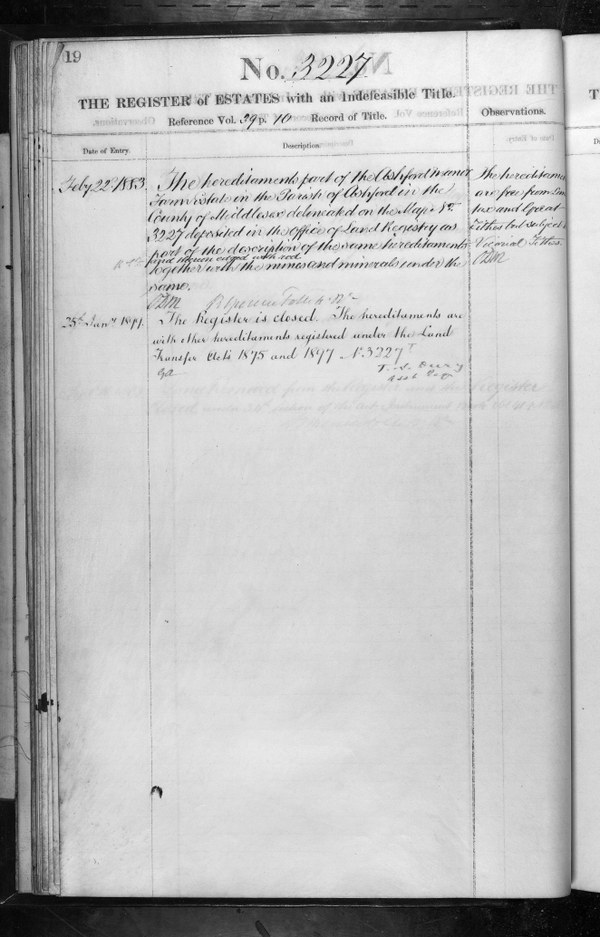 19
No. 3227
THE REGISTER of ESTATES with an Indefeasible Title.
Reference Vol. 29 p. 10 Record of Title.
Observations.
Date of Entry.
Description.
Feby 22d 1883.
The hereditaments part of the Ashford Manor
Farm estate in the Parish of Ashford in the
County of Middlesex delineated on the Map No.
3227 deposited in the office of Land Registry as
part of the description of the same hereditaments
and thereon edged with red
together with the mines and minerals under the
same.
The hereditaments
are free from Land
tax and Great
Tithes but subject
Vicarial Tithes.
25th Jany 1899.
The Register is closed. The hereditaments are
with other hereditaments registered under the Land
Transfer Acts 1875 and 1897 No. 3227
Asst Reg